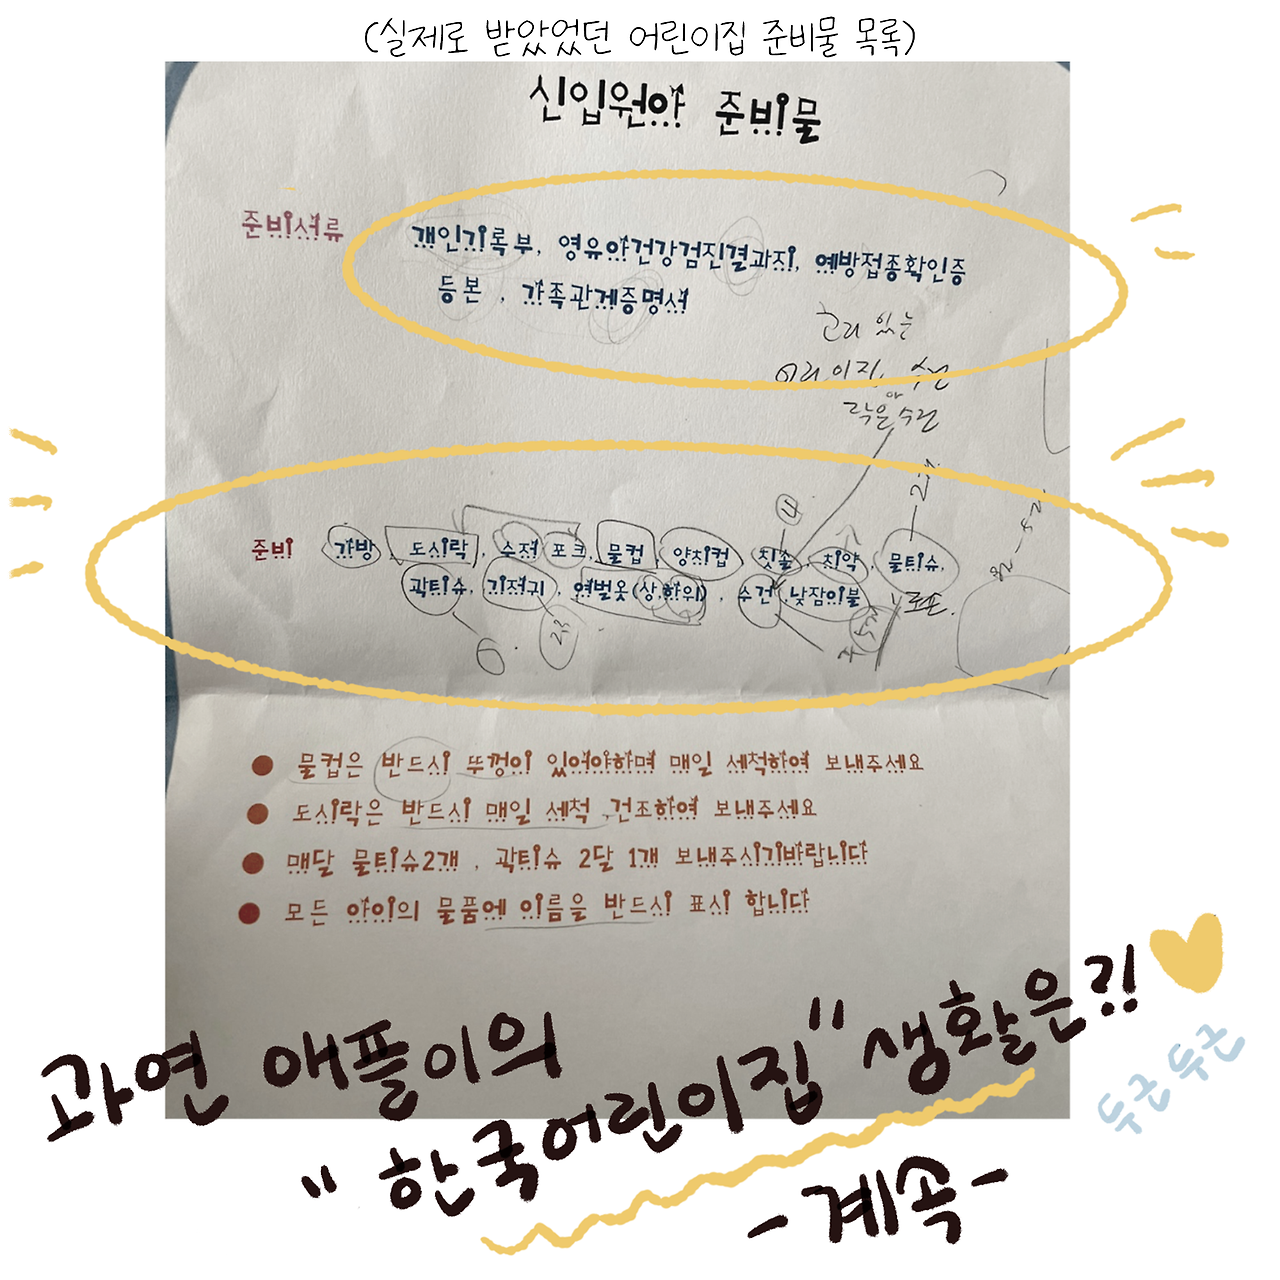 (실제로 받았었던 어린이집 준비물 목록)
신입원아 준비물
준비서류 개인기록부, 영유아건강검진결과지, 예방접종확인증
등본 , 가족관계증명서
고리 있는
어린이집 수건
작은 수건
준비 가방, 도시락, 수저 포크, 물컵, 양치컵, 칫솔, 치약, 물티슈,
곽티슈, 기저귀, 여벌옷(상,하의) , 수건 ,낮잠이불 로션.
● 물컵은 반드시 뚜껑이 있어야하며 매일 세척하여 보내주세요
● 도시락은 반드시 매일 세척 , 건조하여 보내주세요
● 매달 물티슈2개 , 곽티슈 2달 1개 보내주시기바랍니다
● 모든 아이의 물품에 이름을 반드시 표시 합니다
과연 애플이의
"한국어린이집" 생활은?!
두근두근
-계속-